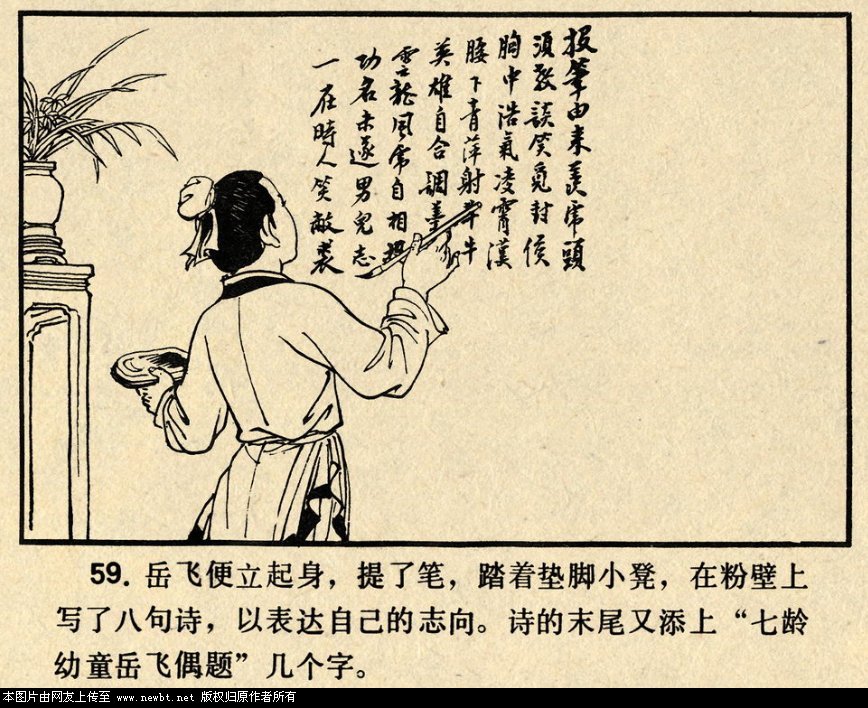 投筆由來羨虎頭
須教談笑覓封侯
胸中浩氣凌霄漢
腰下青萍射斗牛
英雄自合調羹
雲龍風虎自相投
功名未遂男兒志
一在時人笑敝裘
59. 岳飞便立起身，提了笔，踏着垫脚小凳，在粉壁上
写了八句诗，以表达自己的志向。诗的末尾又添上“七龄
幼童岳飞偶题”几个字。
本图片由网友上传至 www.newbt.net 版权归原作者所有